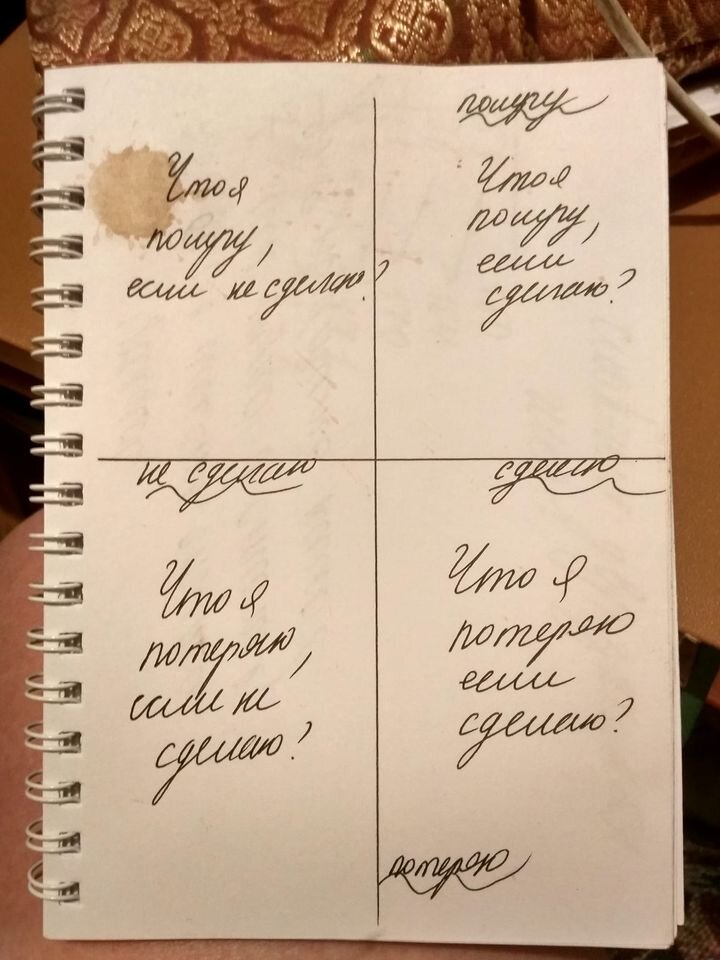 получу
Что я
получу,
если не сделаю?
Что я
получу,
если
сделаю?
не сделаю
сделаю
Что я
потеряю,
если не
сделаю?
Что я
потеряю
если
сделаю?
потеряю